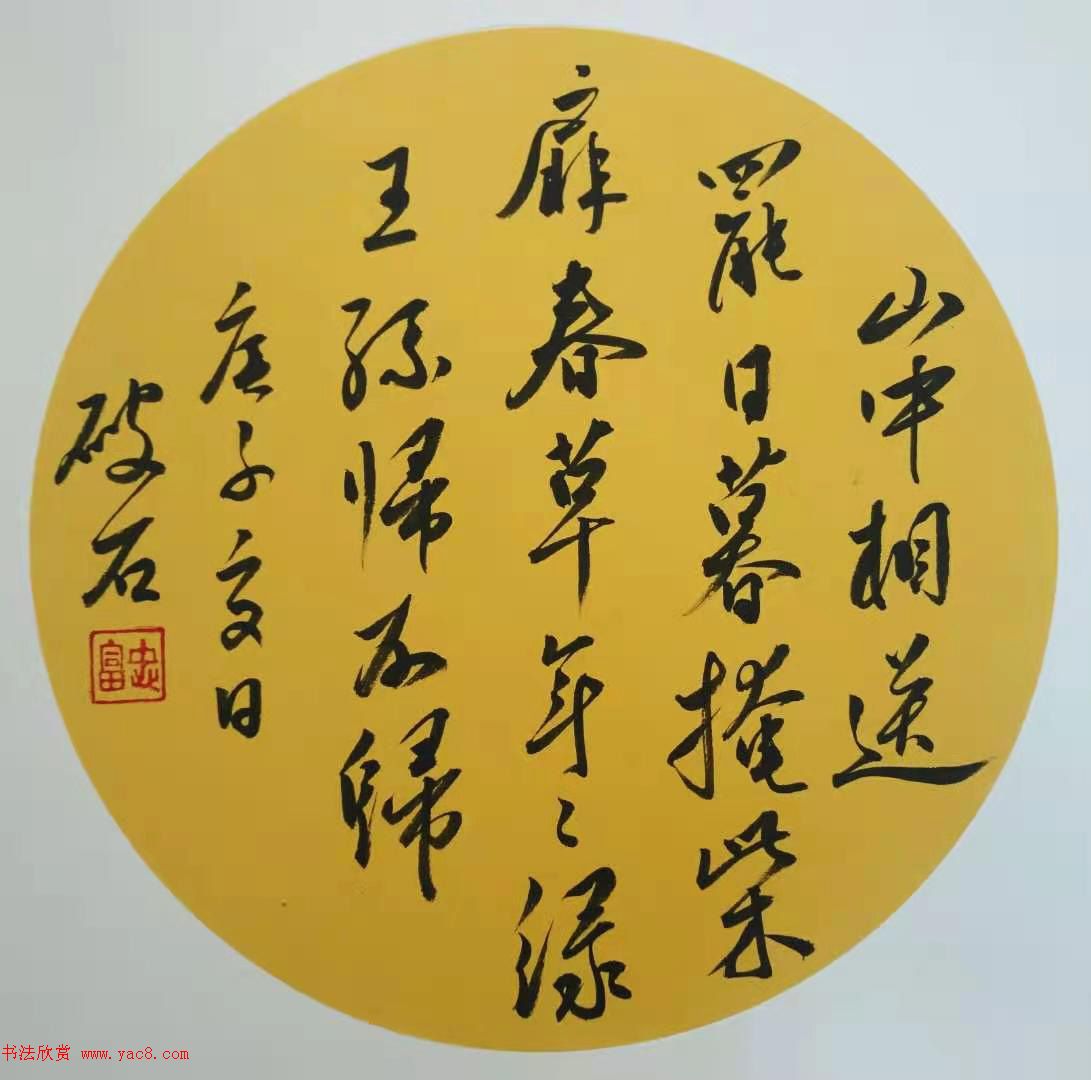 山中相送
罷日暮掩柴
扉春草年〻绿
王孫帰不歸
庚子夏日
破石
忠富
书法欣赏 www.yac8.com